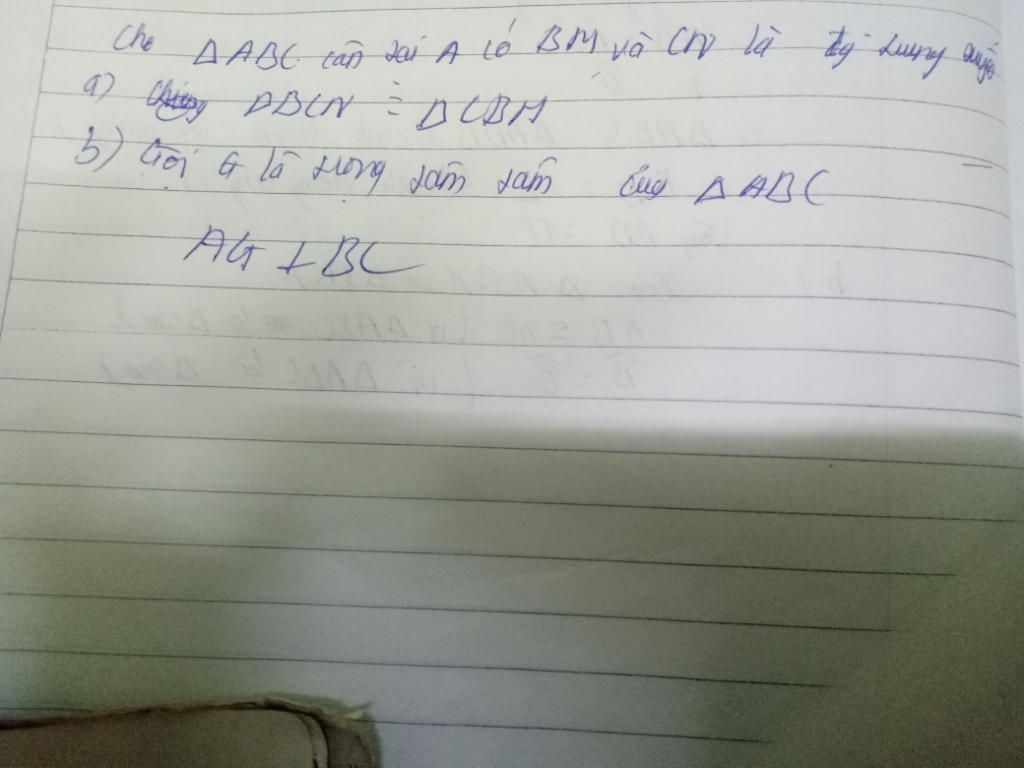 Cho ΔABC cân tại A có BM và CN là đg trung tuyến
a) Chứng ΔBCN = ΔCBM
b) Gọi G là trọng tâm tâm của ΔABC
AG ⊥ BC